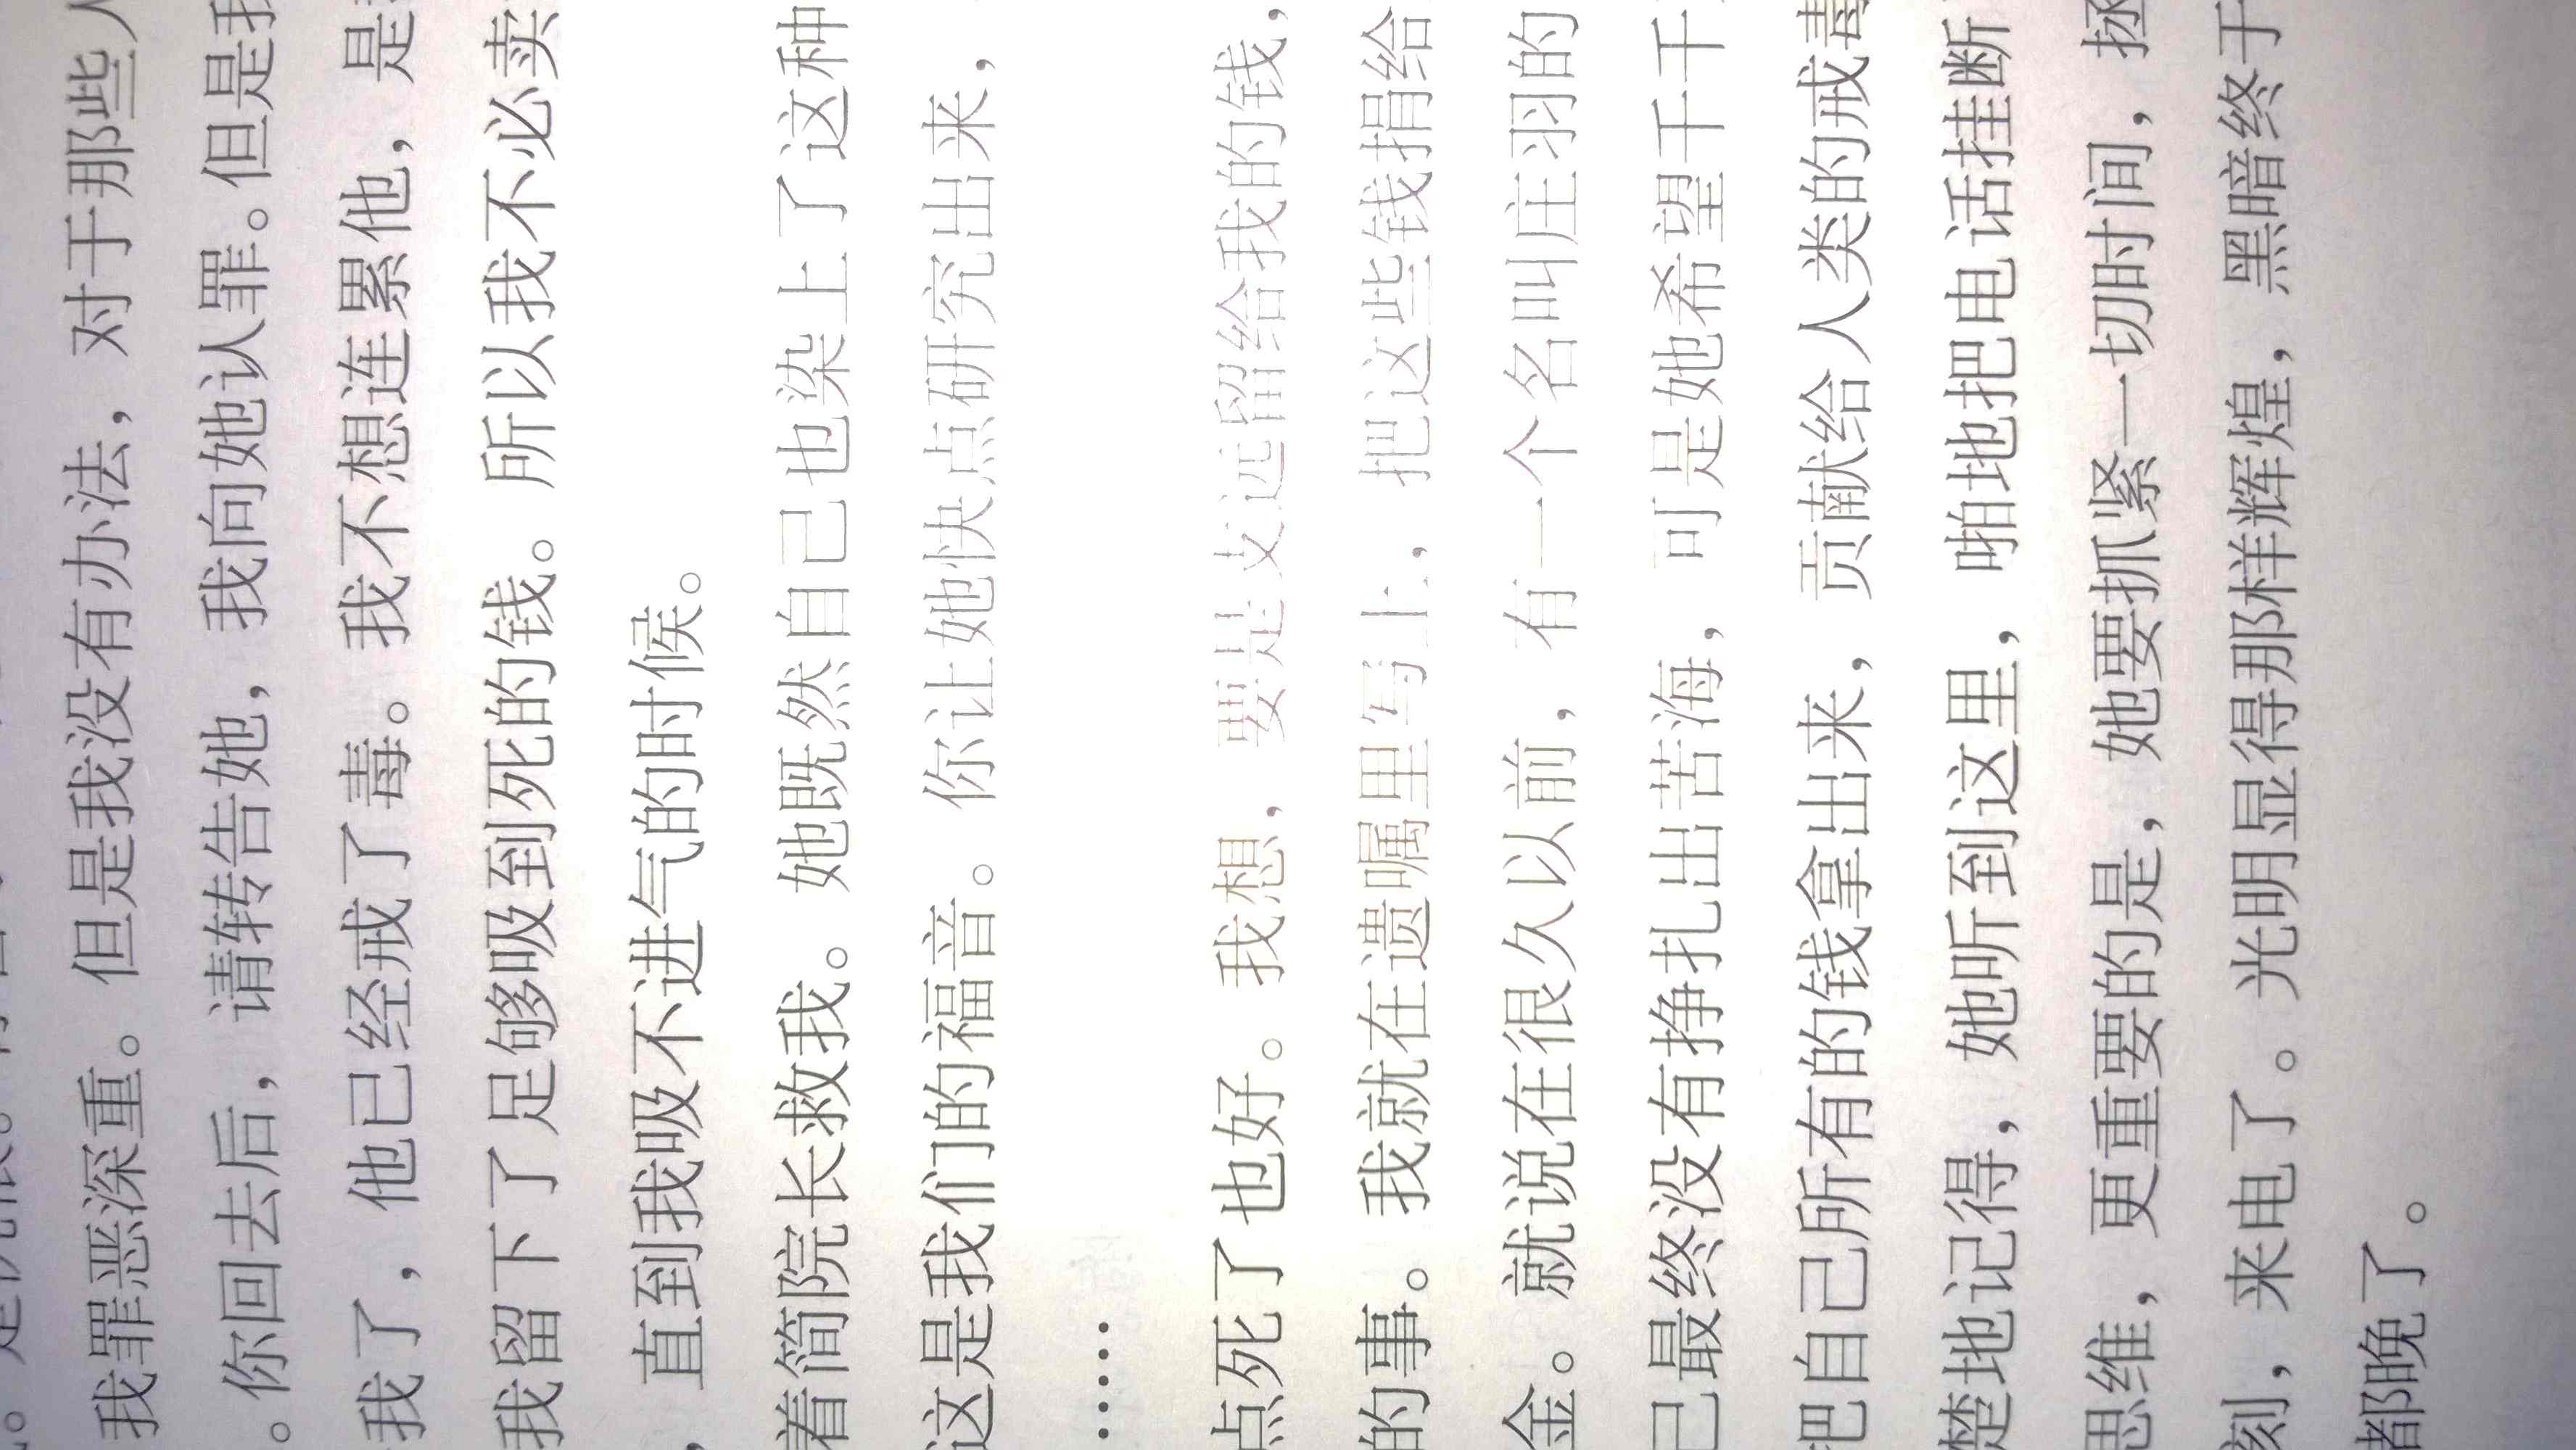 我罪恶深重。但是我没有办法，对于那些人
。你回去后，请转告她，我向她认罪。但是我
我了，他已经戒了毒。我不想连累他，是
我留下了足够吸到死的钱。所以我不必卖
，直到我吸不进气的时候。
着简院长救我。她既然自己也染上了这种
这是我们的福音。你让她快点研究出来，
……
点死了也好。我想，要是支远留给我的钱，
的事。我就在遗嘱里写上，把这些钱捐给
金。就说在很久以前，有一个名叫庄羽的
己最终没有挣扎出苦海，可是她希望千千
把自己所有的钱拿出来，贡献给人类的戒毒
楚地记得，她听到这里，啪地把电话挂断
思维，更重要的是，她要抓紧一切时间，拯
刻，来电了。光明显得那样辉煌，黑暗终于
都晚了。